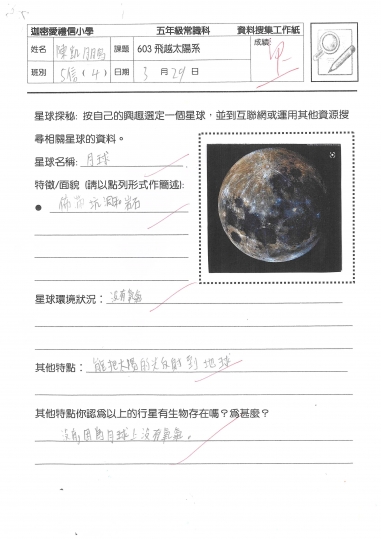 迦密愛禮信小學 五年級常識科 資料搜集工作紙
姓名 陳凱 課題 603 飛越太陽系 成績: 甲
班別 5信(4) 日期 3 月 29 日
星球探秘: 按自己的興趣選定一個星球，並到互聯網或運用其他資源搜
尋相關星球的資料。
星球名稱: 月球
特徵/面貌 (請以點列形式作簡述):
● 佈滿坑洞和岩石
星球環境狀況： 沒有氧氣
其他特點： 能把太陽的光反射到地球
其他特點你認為以上的行星有生物存在嗎？為甚麼？
沒有因為月球上沒有氧氣。